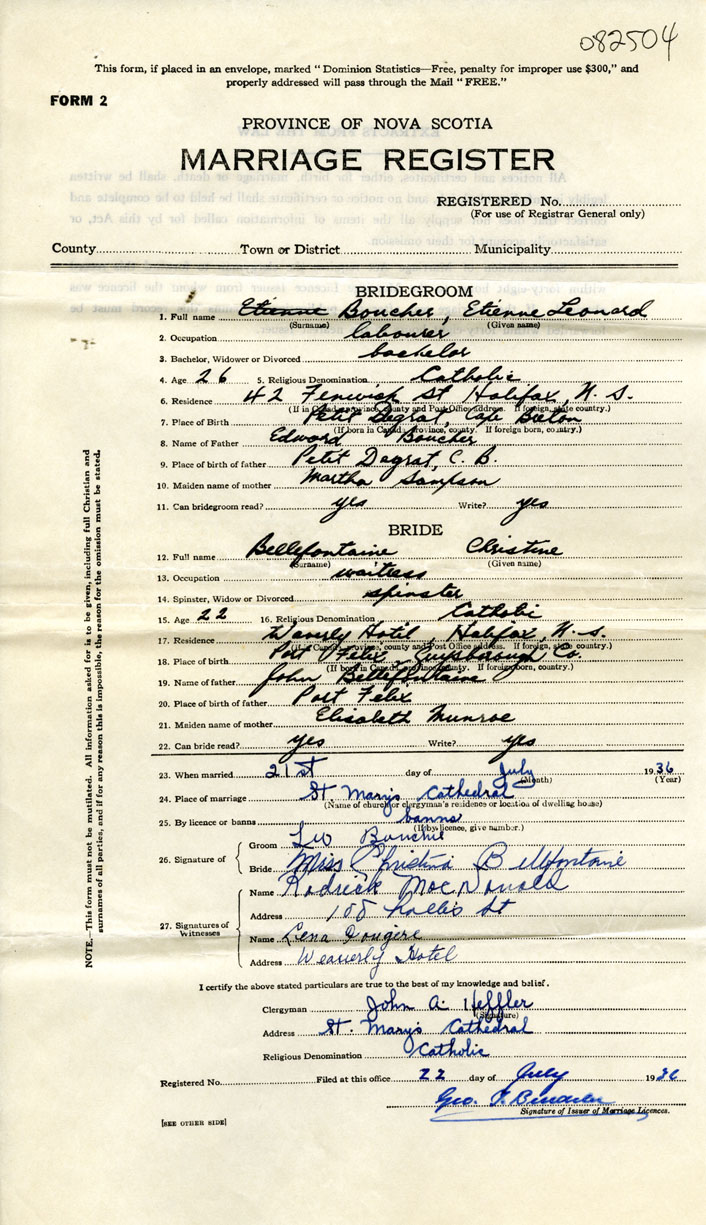 082504
This form, if placed in an envelope, marked "Dominion Statistics—Free, penalty for improper use $300," and
properly addressed will pass through the Mail "FREE."
FORM 2
PROVINCE OF NOVA SCOTIA
MARRIAGE REGISTER
REGISTERED No.
(For use of Registrar General only)
County Town or District Municipality
BRIDEGROOM
1. Full name Etienne Boucher, Etienne Leonard
(Surname) (Given name)
2. Occupation labourer
3. Bachelor, Widower or Divorced bachelor
4. Age 26 5. Religious Denomination Catholic
6. Residence 42 Fenwick St Halifax, N.S.
(If in Canada province, county and Post Office address. If foreign, state country.)
7. Place of Birth Petit Degrat, Cape Breton
(If born in Canada province, county. If foreign born, country.)
8. Name of Father Edward Boucher
9. Place of birth of father Petit Degrat, C. B.
10. Maiden name of mother Martha Sampson
11. Can bridegroom read? yes Write? yes
BRIDE
12. Full name Bellefontaine Christine
(Surname) (Given name)
13. Occupation waitress
14. Spinster, Widow or Divorced spinster
15. Age 22 16. Religious Denomination Catholic
17. Residence Waverly Hotel, Halifax, N.S.
(If in Canada province, county and Post Office address. If foreign, state country.)
18. Place of birth Port Felix, Guysborough Co.
(If born in Canada, province, county. If foreign born, country.)
19. Name of father John Bellefontaine
20. Place of birth of father Port Felix
21. Maiden name of mother Elisabeth Munroe
22. Can bride read? yes Write? yes
23. When married 21st day of July 1936
(Month) (Year)
24. Place of marriage St Mary's Cathedral
(Name of church or clergyman's residence or location of dwelling house)
25. By licence or banns banns
(If by licence, give number.)
26. Signature of
Groom Leo
Bride Miss Christina Bellfontaine
27. Signatures of Witnesses
Name Rodrick MacDonald
Address 188 hollis st
Name Lena Fougere
Address Weaverly Hotel
I certify the above stated particulars are true to the best of my knowledge and belief.
Clergyman John A. Heffler
(Signature)
Address St. Mary's Cathedral
Religious Denomination Catholic
Registered No. Filed at this office 22 day of July 1936
Geo.
Signature of Issuer of Marriage Licences.
[SEE OTHER SIDE]
NOTE.—This form must not be mutilated. All information asked for is to be given, including full Christian and
surnames of all parties, and if for any reason this is impossible, the reason for the omission must be stated.